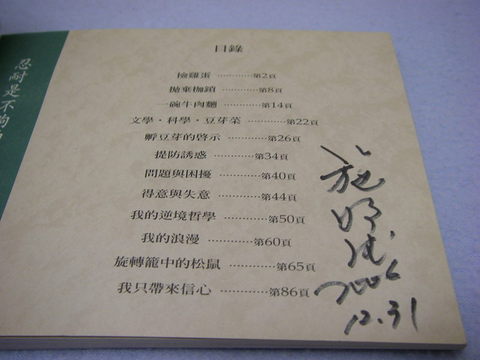 目錄
撿雞蛋 …………第2頁
拋棄枷鎖 …………第8頁
一碗牛肉麵 …………第14頁
文學・科學・豆芽菜 …………第22頁
孵豆芽的啓示 …………第26頁
提防誘惑 …………第34頁
問題與困擾 …………第40頁
得意與失意 …………第44頁
我的逆境哲學 …………第50頁
我的浪漫 …………第60頁
旋轉籠中的松鼠 …………第65頁
我只帶來信心 …………第86頁
施明德
2006
12.31
忍耐是不夠